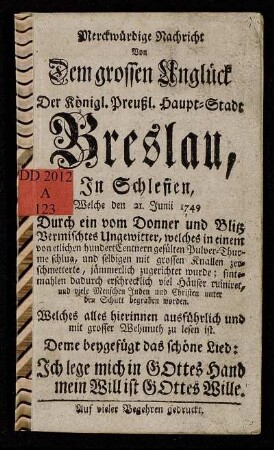 Merckwürdige Nachricht
Von
Dem grossen Unglück
Der Königl. Preußl. Haupt-Stadt
Breslau,
In Schlesien,
Welche den 21. Junii 1749
Durch ein vom Donner und Blitz
Vermischtes Ungewitter, welches in einem
von etlichen hundert Centnern gefülten Pulver-Thur-
me schlug, und selbigen mit grossen Knallen zer-
schmetterte, jämmerlich zugerichtet wurde; sinte-
mahlen dadurch erschrecklich viel Häuser ruiniret,
und viele Menschen Juden und Christen unter
dem Schutt begraben worden.
Welches alles hierinnen ausführlich und
mit grosser Wehmuth zu lesen ist.
Deme beygefügt das schöne Lied:
Ich lege mich in GOttes Hand
mein Will ist GOttes Wille.
Auf vieler Begehren gedruckt.
DD 2012
A
123